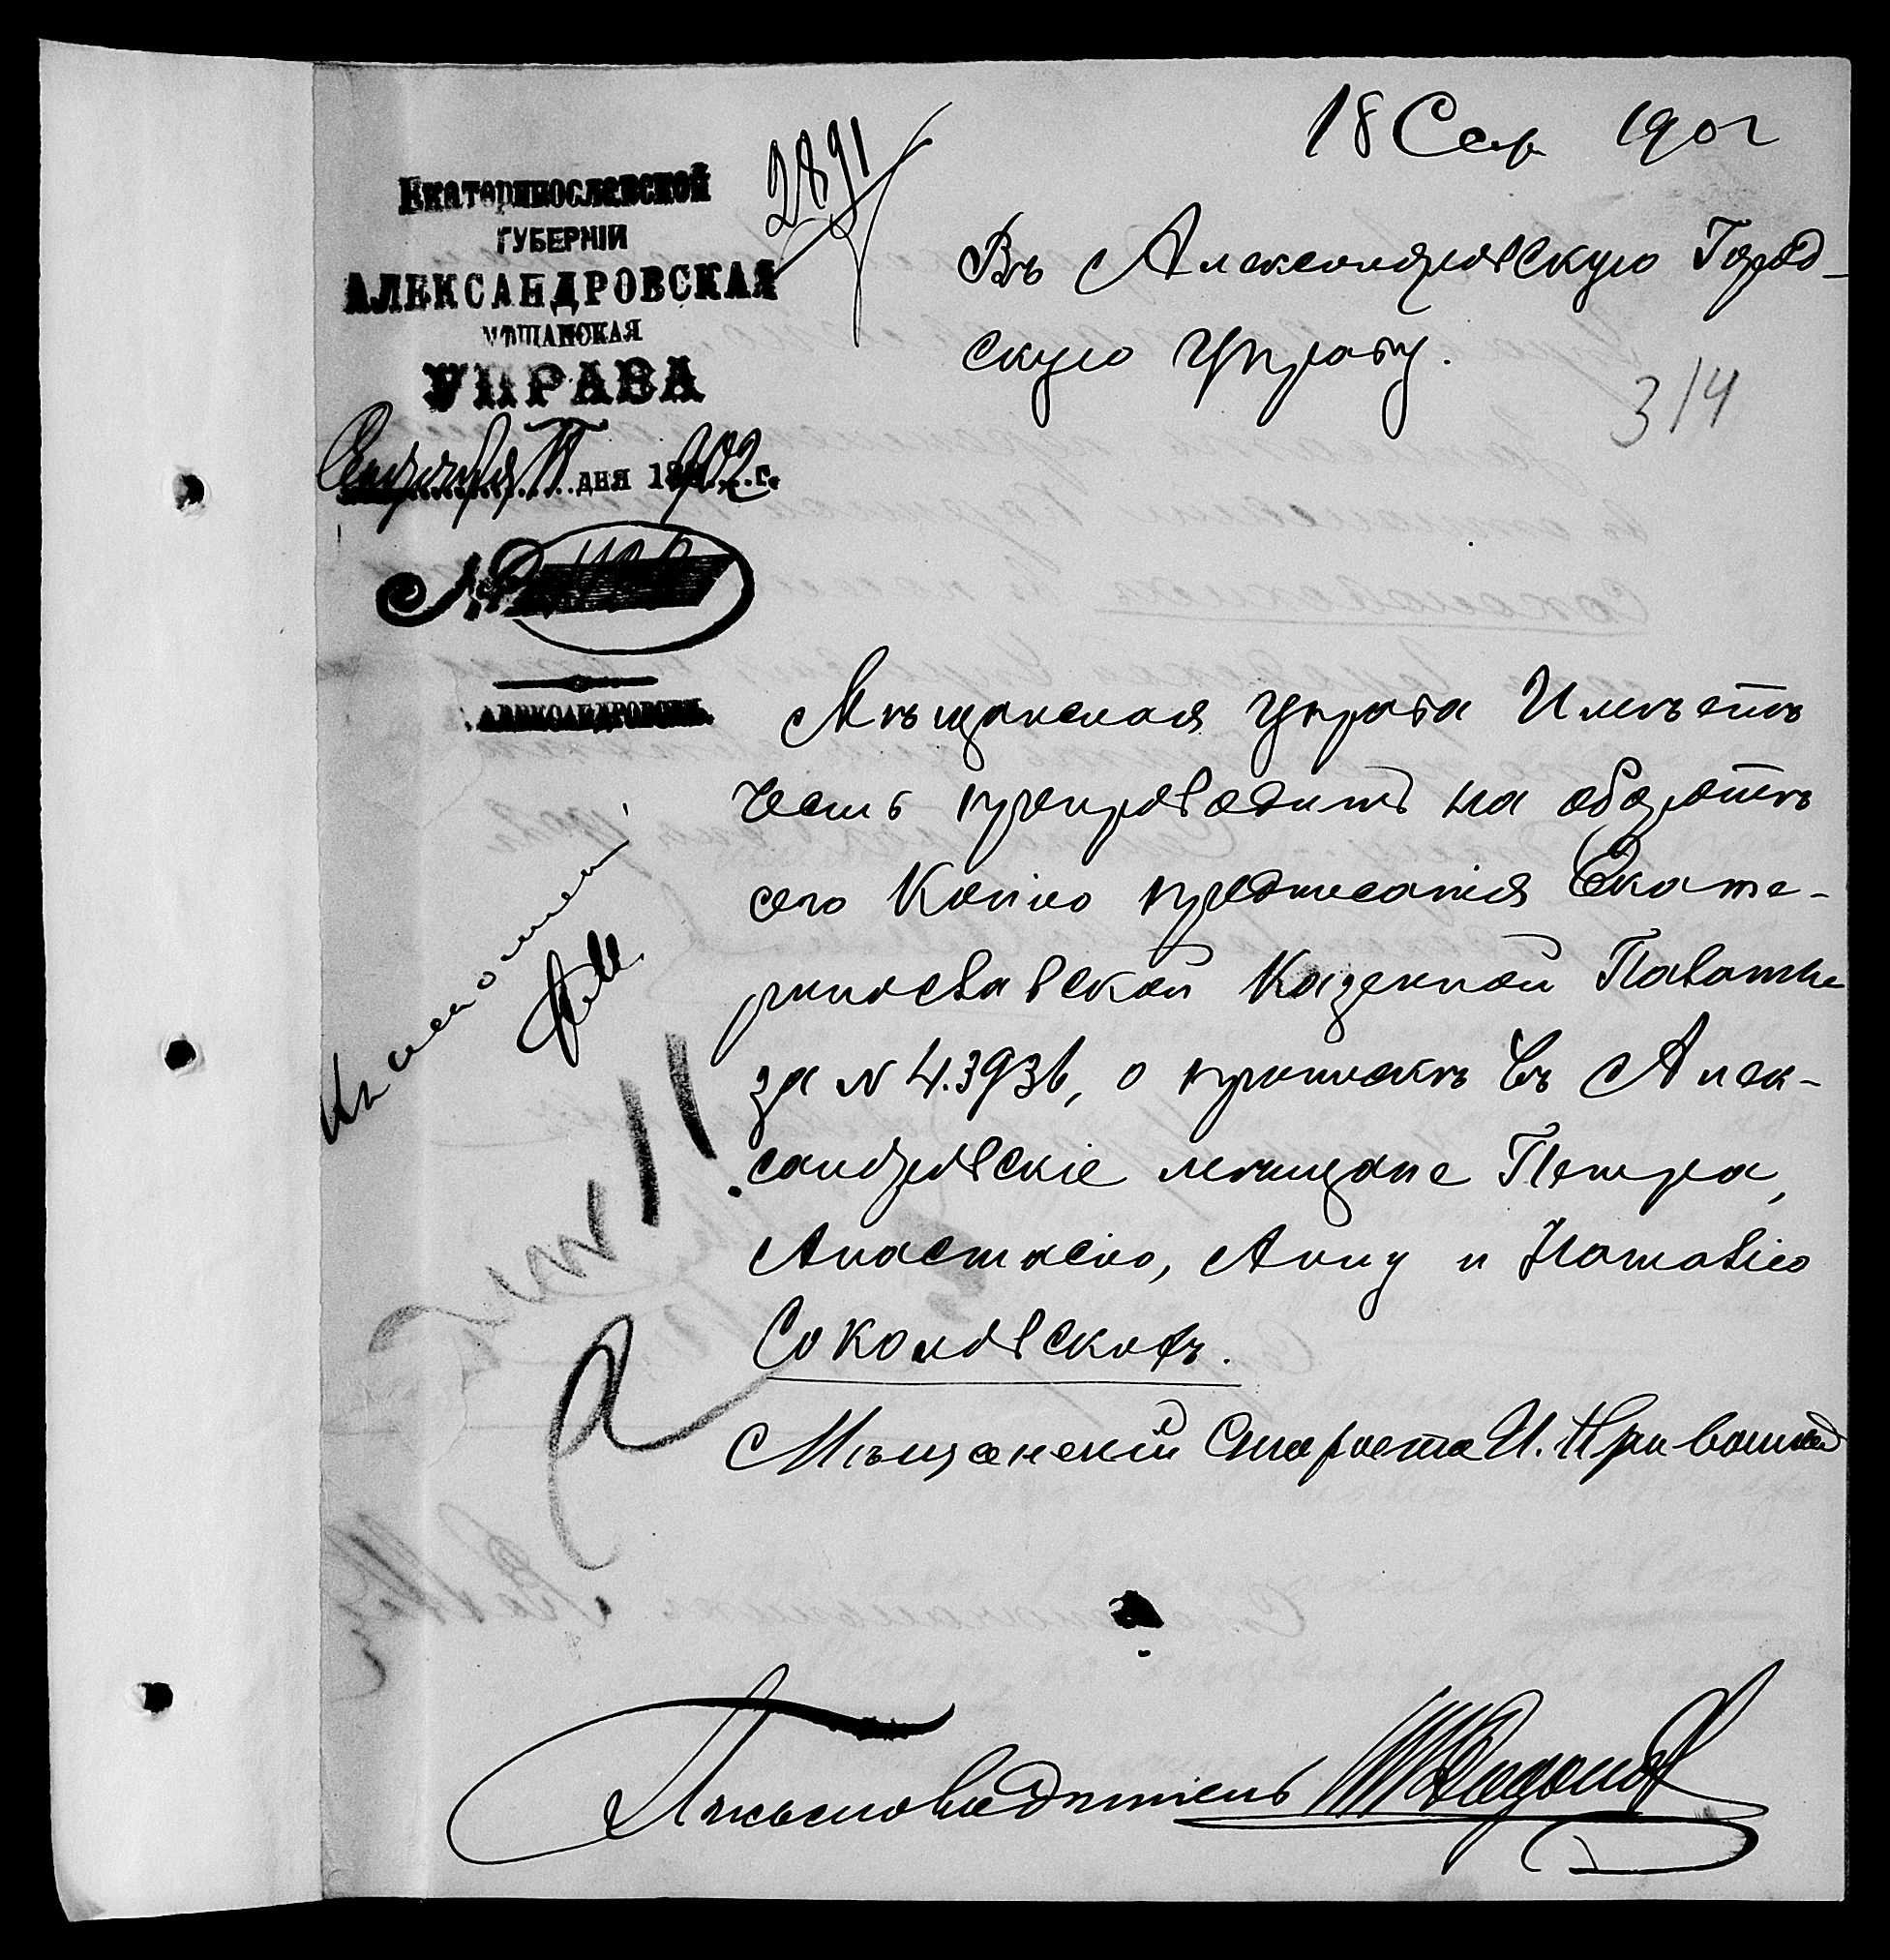 18 Сен 1902
2891
Екатеринославской
ГУБЕРНІИ
АЛЕКСАНДРОВСКАЯ
МѢЩАНСКАЯ
УПРАВА
Сентября 17 дня 1902 г.
№
АЛЕКСАНДРОВСКЪ.
Въ Александровскую Город-
скую Управу.
314
Мѣщанская Управа Имѣетъ
честь препроводить на оборотѣ
сего Копію предписанія Екате-
ринославской Казенной Палаты
за № 43936, о припискѣ въ Алек-
сандровскіе мещане Петра,
Анастасію, Анну и Наталію
Соколовскихъ.
Мѣщанскій Староста И.
Письмоводитель